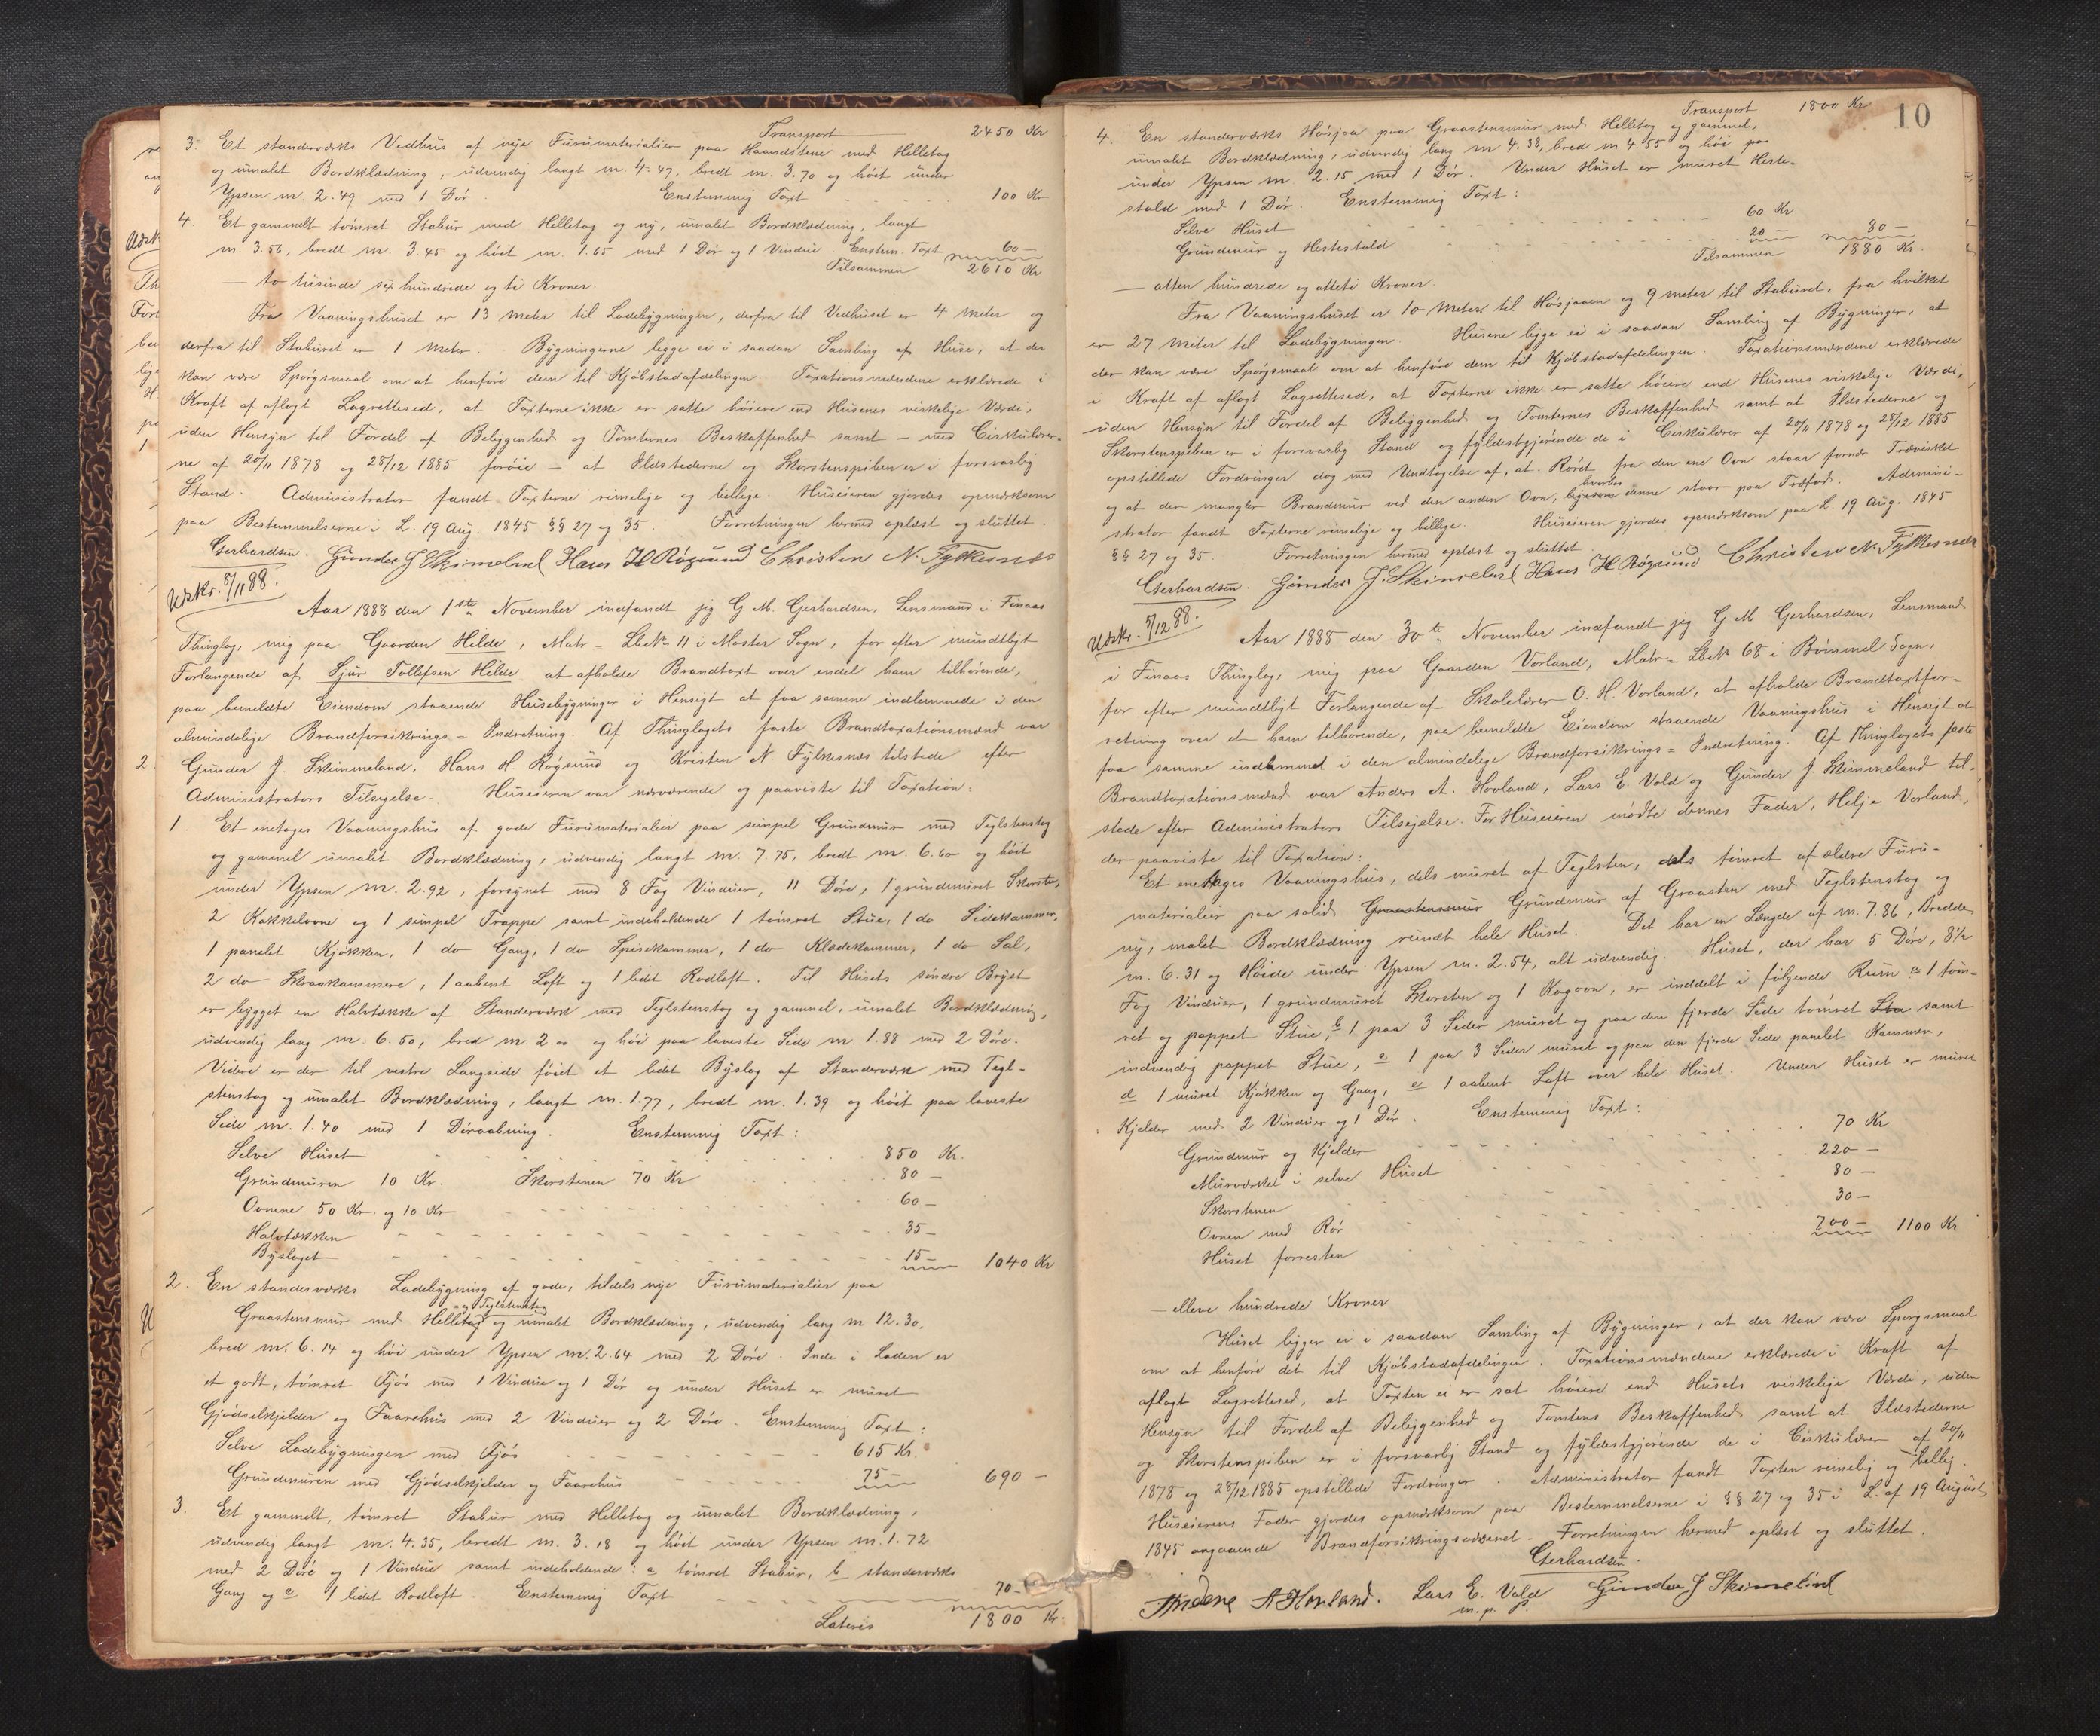 Transport 2450 Kr
3. Et standerværks Vedhus af nye Furumaterialier paa Haandstene med Helletag
og umalet Bordklædning, udvendig langt m. 4.47, bredt m. 3.70 og høit under
Ypsen m. 2.49 med 1 Dør. Enstemmig Taxt 100 Kr
4. Et gammelt tømret Stabur med Helletag og ny, umalet Bordklædning, langt
m. 3.56, bredt m. 3.45 og høit m. 1.65 med 1 Dør og 1 Vindue. Enstem. Taxt 60 —
Tilsammen 2610 Kr
— to tusinde sex hundrede og ti Kroner.
Fra Vaaningshuset er 13 Meter til Ladebygningen, derfra til Vedhuset er 4 Meter og
derfra til Staburet er 1 Meter. Bygningerne ligge ei i saadan Samling af Huse, at der
kan være Spørgsmaal om at henføre dem til Kjøbstadafdelingen. Taxationsmændene erklærede i
Kraft af aflagt Lagrettesed, at Taxterne ikke er satte høiere end Husenes virkelige Værdi,
uden Hensyn til Fordel af Beliggenhed og Tomternes Beskaffenhed samt — med Cirkulærer-
ne af 20/11 1878 og 28/12 1885 forøie — at Ildstederne og Skorstenspiben er i forsvarlig
Stand. Administrator fandt Taxterne rimelige og billige. Huseieren gjordes opmærksom
paa Bestemmelserne i L. 19 Aug. 1845 §§ 27 og 35. Forretningen hermed oplæst og sluttet.
Gerhardsen. Gunder J Skimeland Hans H Røgsund Christen N. Fylkesnes
Udskr. 8/11 88.
Aar 1888 den 1ste November indfandt jeg G. M. Gerhardsen, Lensmand i Finaas
Thinglag, mig paa Gaarden Hilde, Matr-Lbek 11 i Moster Sogn, for efter mundtligt
Forlangende af Sjur Tollefsen Hilde at afholde Brandtaxt over endel ham tilhørende,
paa bemeldte Eiendom staaende Husebygninger i Hensigt at faa samme indlemmede i den
almindelige Brandforsikrings-Indretning. Af Thinglagets faste Brandtaxationsmænd var
2 Gunder J. Skimmeland, Hans H. Røgsund og Kristen N. Fylkesnes tilstede efter
Administrators Tilsigelse. Huseieren var nærværende og paaviste til Taxation:
1 Et enetages Vaaningshus af gode Furumaterialier paa simpel Grundmur med Teglstenstag
og gammel umalet Bordklædning, udvendig langt m. 7.75, bredt m. 6.60 og høit
under Ypsen m. 2.92, forsynet med 8 Fag Vinduer, 11 Døre, 1 grundmuret Skorsten,
2 Kakkelovne og 1 simpel Trappe samt indeholdende 1 tømret Stue, 1 do Sidekammer,
1 panelet Kjøkken, 1 do Gang, 1 do Spisekammer, 1 do Klædekammer, 1 do Sal,
2 do Skraakammere, 1 aabent Loft og 1 lidet Rodloft. Til Husets søndre Bryst
er bygget en Halvtække af Standerværk med Teglstenstag og gammel, umalet Bordklædning,
udvendig lang m. 6.50, bred m. 2.00 og høi paa laveste Side m. 1.88 med 2 Døre.
Videre er der til vestre Langside føiet et lidet Byslag af Standerværk med Tegl-
stenstag og umalet Bordklædning, langt m. 1.77, bredt m. 1.39 og høit paa laveste
Side m. 1.40 med 1 Døraabning. Enstemmig Taxt:
Selve Huset 850 Kr.
Grundmuren 10 Kr. Skorstenen 70 Kr 80 —
Ovnene 50 Kr. og 10 Kr 60 —
Halvtækken 35 —
Byslaget 15 — 1040 Kr
2. En standerværks Ladebygning af gode, tildels nye Furumaterialier paa
Graastensmur med Helletag og Teglstenstag og umalet Bordklædning, udvendig lang m 12.30,
bred m. 6.14 og høi under Ypsen m. 2.64 med 2 Døre. Inde i Laden er
et godt, tømret Fjøs med 1 Vindue og 1 Dør og under Huset er muret
Gjødselkjelder og Faarehus med 2 Vinduer og 2 Døre. Enstemmig Taxt:
Selve Ladebygningen med Fjøs 615 Kr.
Grundmuren med Gjødselkjelder og Faarehus 75 — 690 —
3. Et gammelt, tømret Stabur med Helletag og umalet Bordklædning,
udvendig langt m. 4.35, bredt m. 3.18 og høit under Ypsen m. 1.72
med 2 Døre og 1 Vindue samt indeholdende: a tømret Stabur, b standerværks
Gang og c 1 lidet Rodloft. Enstemmig Taxt 70 —
Lateris 1800 Kr.
10
Transport 1800 Kr
4. En standerværks Høsjaa paa Graastensmur med Helletag og gammel,
umalet Bordklædning, udvendig lang m 4.38, bred m 4.55 og høi paa
under Ypsen m 2.15 med 1 Dør. Under Huset er muret Heste-
stald med 1 Dør. Enstemmig Taxt:
Selve Huset 60 Kr
Grundmur og Hestestald 20 — 80 —
Tilsammen 1880 Kr.
— atten hundrede og otteti Kroner.
Fra Vaaningshuset er 10 Meter til Høsjaaen og 9 Meter til Staburet, fra hvilket
er 27 Meter til Ladebygningen. Husene ligge ei i saadan Samling af Bygninger, at
der kan være Spørgsmaal om at henføre dem til Kjøbstadafdelingen. Taxationsmændene erklærede
i Kraft af aflagt Lagrettesed, at Taxterne ikke er satte høiere end Husenes virkelige Værdi,
uden Hensyn til Fordel af Beliggenhed og Tomternes Beskaffenhed samt at Ildstederne og
Skorstenspiben er i forsvarlig Stand og fyldestgjørende de i Cirkulærer af 20/11 1878 og 28/12 1885
opstillede Fordringer dog med Undtagelse af, at Røret fra den ene Ovn staar fornær Trævirket
og at der mangler Brandmur ved den anden Ovn, hvorhos denne staar paa Træfod. Admini-
strator fandt Taxterne rimelige og billige. Huseieren gjordes opmærksom paa L. 19 Aug. 1845
§§ 27 og 35. Forretningen hermed oplæst og sluttet
Gerhardsen. Gunder J. Skimeland Hans H Røgsund Christen N. Fylkesnes
Udskr. 5/12 88.
Aar 1888 den 30te November indfandt jeg G M Gerhardsen, Lensmand
i Finaas Thinglag, mig paa Gaarden Vorland, Matr-Lbek 68 i Bømmel Sogn,
for efter mundtligt Forlangende af Skolelærer O. H. Vorland, at afholde Brandtaxtfor-
retning over et ham tilhørende, paa bemeldte Eiendom staaende Vaaningshus i Hensigt at
faa samme indlemmet i den almindelige Brandforsikrings-Indretning. Af Thinglagets faste
Brandtaxationsmænd var Anders A. Hovland, Lars E. Vold og Gunder J. Skimmeland til-
stede efter Administrators Tilsigelse. For Huseieren mødte dennes Fader, Helje Vorland,
der paaviste til Taxation:
Et enetages Vaaningshus, dels muret af Teglsten, dels tømret af ældre Furu-
materialier paa solid Graastensmur Grundmur af Graasten med Teglstenstag og
ny, malet Bordklædning rundt hele Huset. Det har en Længde af m. 7.86, Bredde
m. 6.31 og Høide under Ypsen m. 2.54, alt udvendig. Huset, der har 5 Døre, 8½
Fag Vinduer, 1 grundmuret Skorsten og 1 Kogovn, er inddelt i følgende Rum: a 1 tøm-
ret og pappet Stue, b 1 paa 3 Sider muret og paa den fjerde Side tømret Stu samt
indvendig pappet Stue, c 1 paa 3 Sider muret og paa den fjerde Side panelet Kammer,
d 1 muret Kjøkken og Gang, e 1 aabent Loft over hele Huset. Under Huset er muret
Kjelder med 2 Vinduer og 1 Dør. Enstemmig Taxt:
Grundmur og Kjelder 70 Kr
Murværket i selve Huset 220 —
Skorstenen 80 —
Ovnen med Rør 30 —
Huset forresten 700 — 1100 Kr
— elleve hundrede Kroner
Huset ligger ei i saadan Samling af Bygninger, at der kan være Spørgsmaal
om at henføre det til Kjøbstadafdelingen. Taxationsmændene erklærede i Kraft af
aflagt Lagrettesed, at Taxten ei er sat høiere end Husets virkelige Værdi, uden
Hensyn til Fordel af Beliggenhed og Tomtens Beskaffenhed samt at Ildstederne
og Skorstenspiben er i forsvarlig Stand og fyldestgjørende de i Cirkulærer af 20/11
1878 og 28/12 1885 opstillede Fordringer. Administrator fandt Taxten rimelig og billig.
Huseierens Fader gjordes opmærksom paa Bestemmelserne i §§ 27 og 35 i L. af 19 August
1845 angaaende Brandforsikringsvæsenet. Forretningen hermed oplæst og sluttet.
Gerhardsen.
Anders A Hovland. Lars E. Vold Gunder J Skimeland
m. p. P.